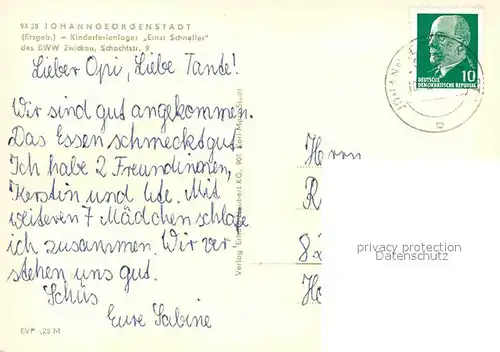 9438 JOHANNGEORGENSTADT
(Erzgeb.) – Kinderferienlager „Ernst Schneller"
des BWW Zwickau, Schachtstr. 9
DEUTSCHE
DEMOKRATISCHE REPUBLIK 10
Lieber Opi, Liebe Tante!
Wir sind gut angekommen.
Das Essen schmeckt gut
Ich habe 2 Freundinnen,
Kerstin und Ute. Mit
weiteren 7 Mädchen schlafe
ich zusammen. Wir ver
stehen uns gut.
Schüs
Eure Sabine
Herrn
R
82
Ho
privacy protection
Datenschutz
Verlag KG, 901
EVP -,25 M